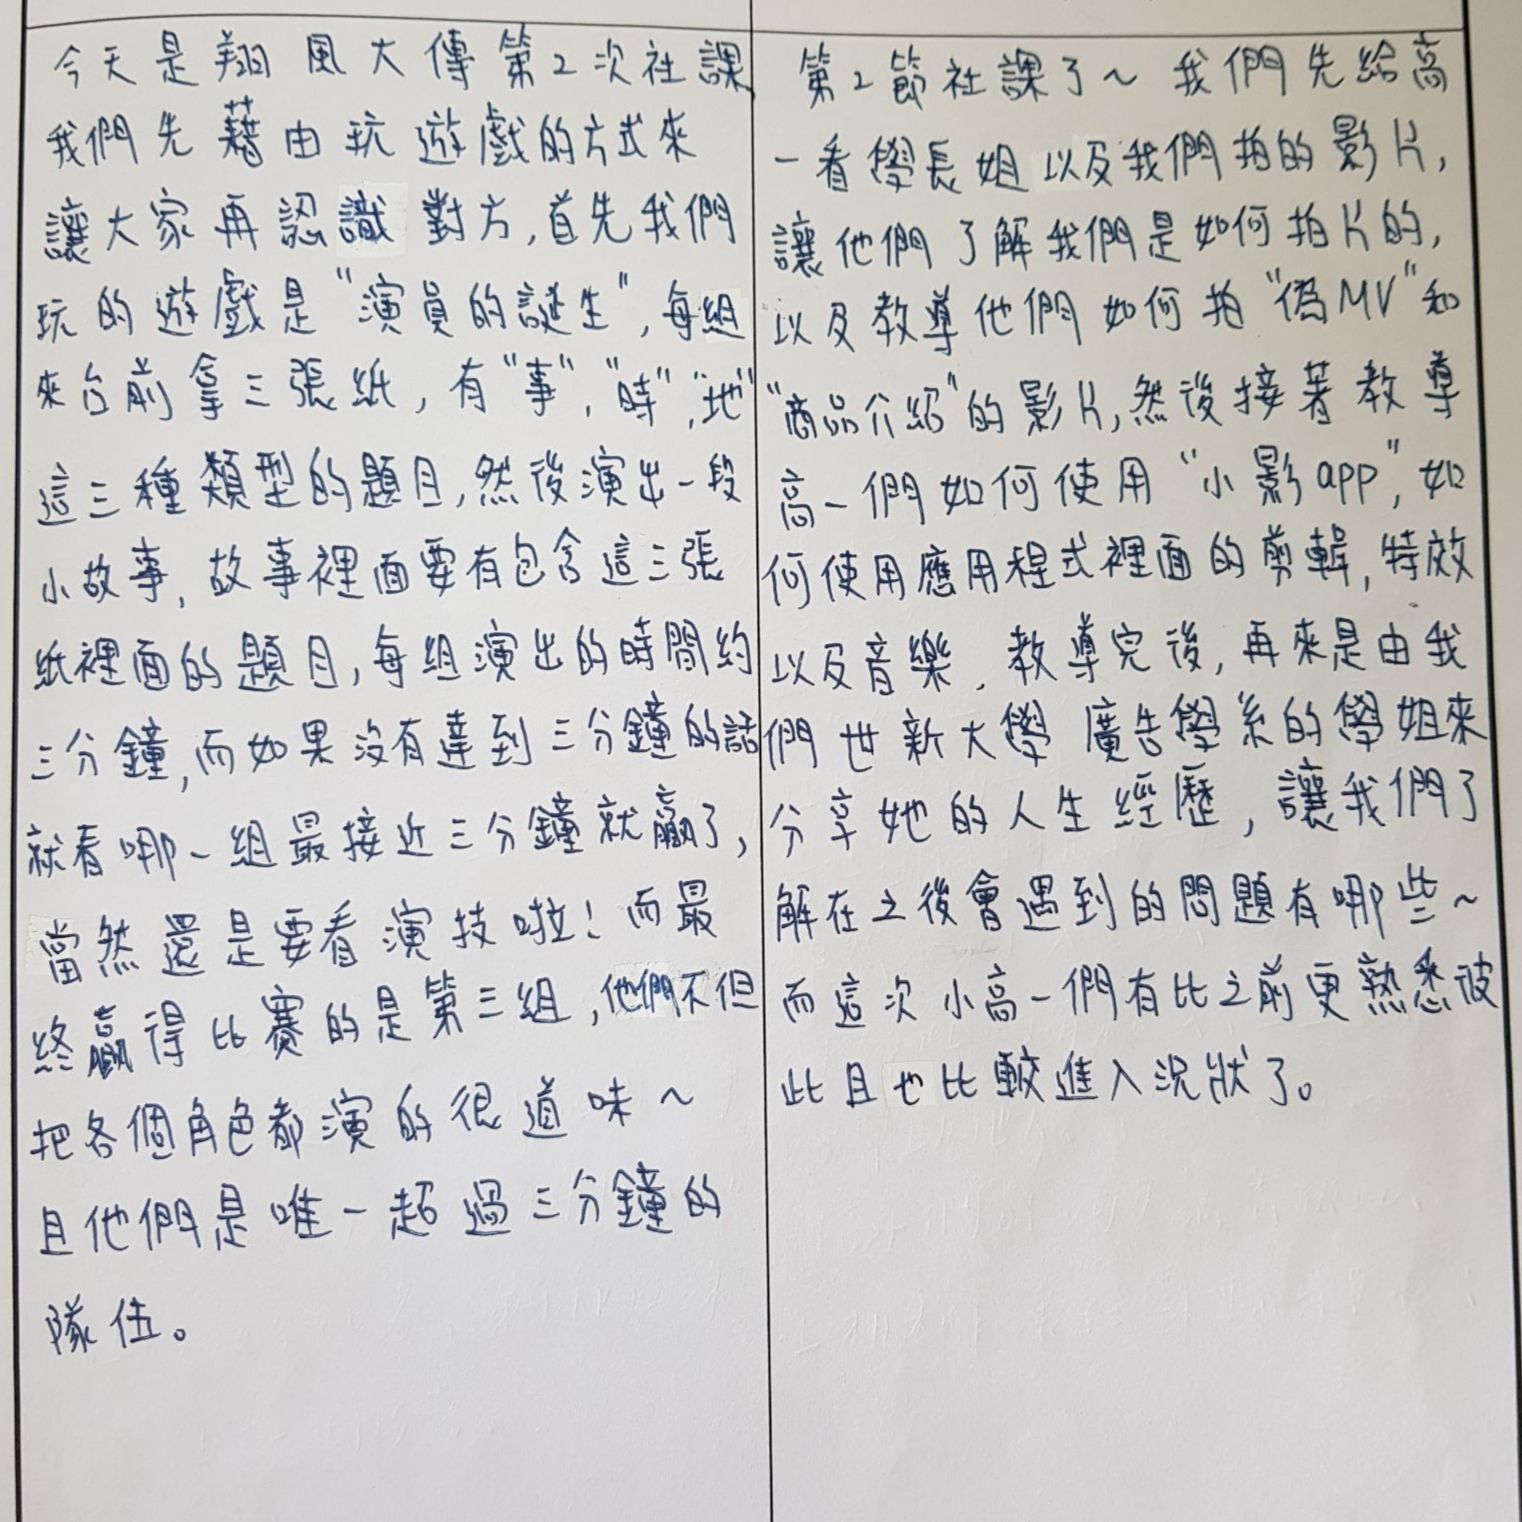 今天是翔風大傳第2次社課
我們先藉由玩遊戲的方式來
讓大家再認識對方,首先我們
玩的遊戲是"演員的誕生",每組
來台前拿三張紙,有"事","時","地"
這三種類型的題目,然後演出一段
小故事,故事裡面要有包含這三張
紙裡面的題目,每組演出的時間約
三分鐘,而如果沒有達到三分鐘的話
就看哪一組最接近三分鐘就贏了,
當然還是要看演技啦!而最
終贏得比賽的是第三組,他們不但
把各個角色都演的很道味~
且他們是唯一超過三分鐘的
隊伍。
第2節社課了~我們先給高
一看學長姐以及我們拍的影片,
讓他們了解我們是如何拍片的,
以及教導他們如何拍"偽MV"和
"商品介紹"的影片,然後接著教導
高一們如何使用"小影app",如
何使用應用程式裡面的剪輯,特效
以及音樂.教導完後,再來是由我
們世新大學廣告學系的學姐來
分享她的人生經歷,讓我們了
解在之後會遇到的問題有哪些~
而這次小高一們有比之前更熟悉彼
此且也比較進入況狀了。